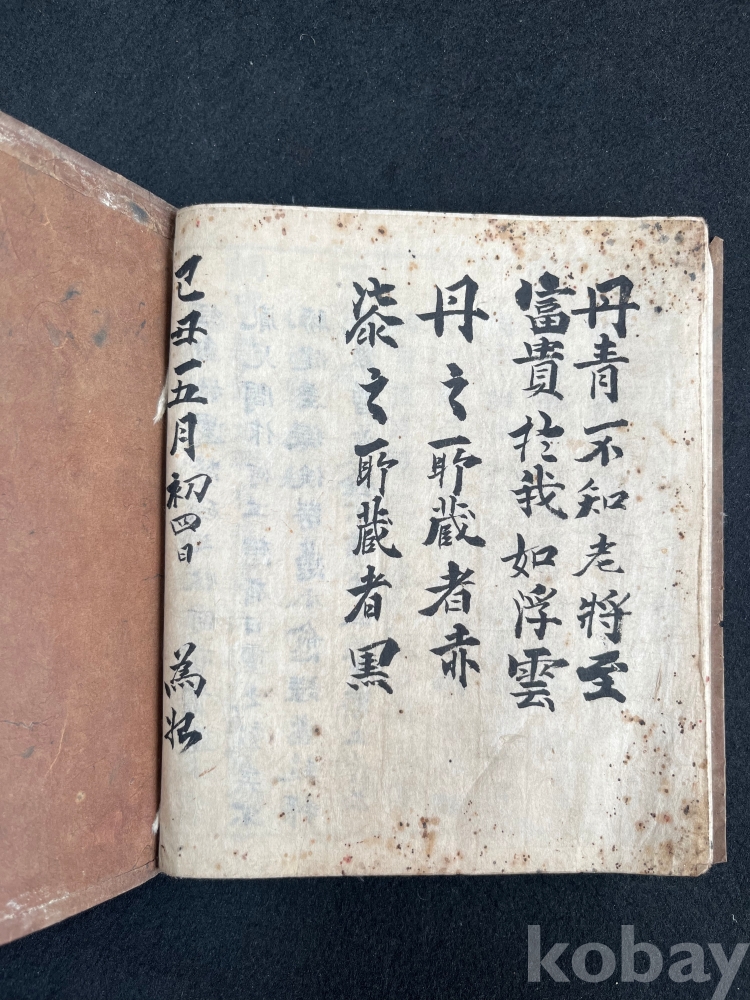 丹青不知老將至
富貴於我如浮雲
丹之所藏者赤
漆之所藏者黑
己丑五月初四日 為始
kobay